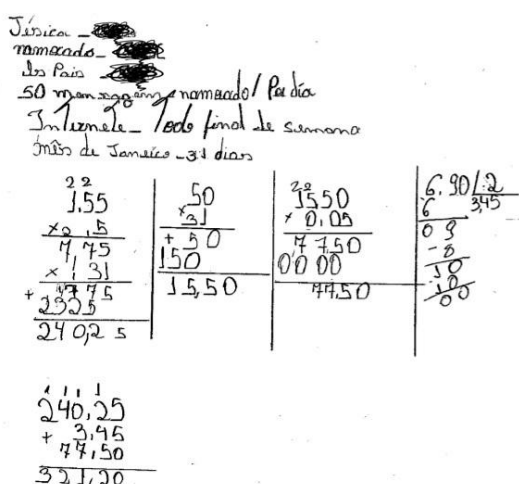 Jésica -
namorado -
Os Pais -
50 mensagens namorado / Por dia
Internete - todo final de semana
mês de Janeiro - 31 dias
2 2
1,55
x 5
7,75
x 31
775
+ 2325
240,25
50
x31
+ 50
150
15,50
2 2
1550
x 0,05
7750
0000
77,50
6,90 2
6 3,45
09
-8
10
-10
00
1 1 1
240,25
+ 3,45
77,50
321,20